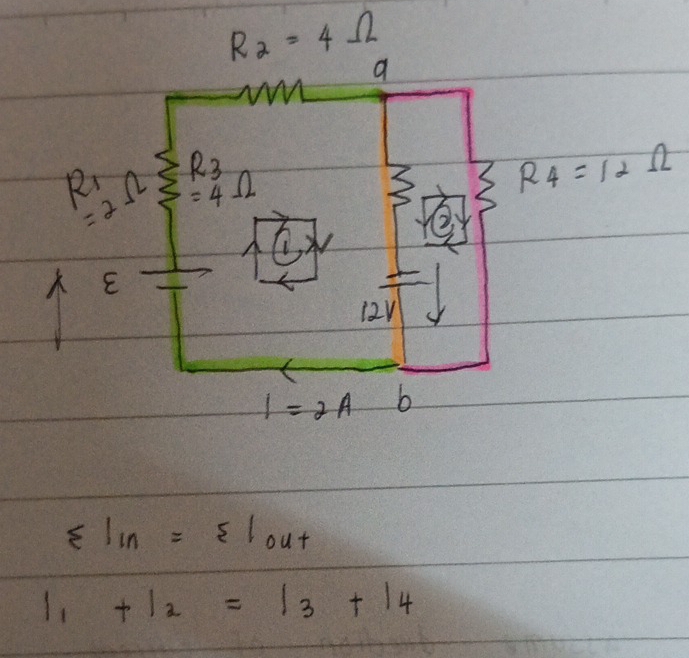 R2 = 4 Ω
a
R1 = 2 Ω
R3 = 4 Ω
R4 = 12 Ω
1
2
ε
12V
I = 2A
b
Σ Iin = Σ Iout
I1 + I2 = I3 + I4